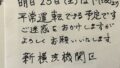 明日25日(金)は
平常運転できる予定です
ご迷惑をおかけしますが
よろしくお願いいたします
新種渓機関区